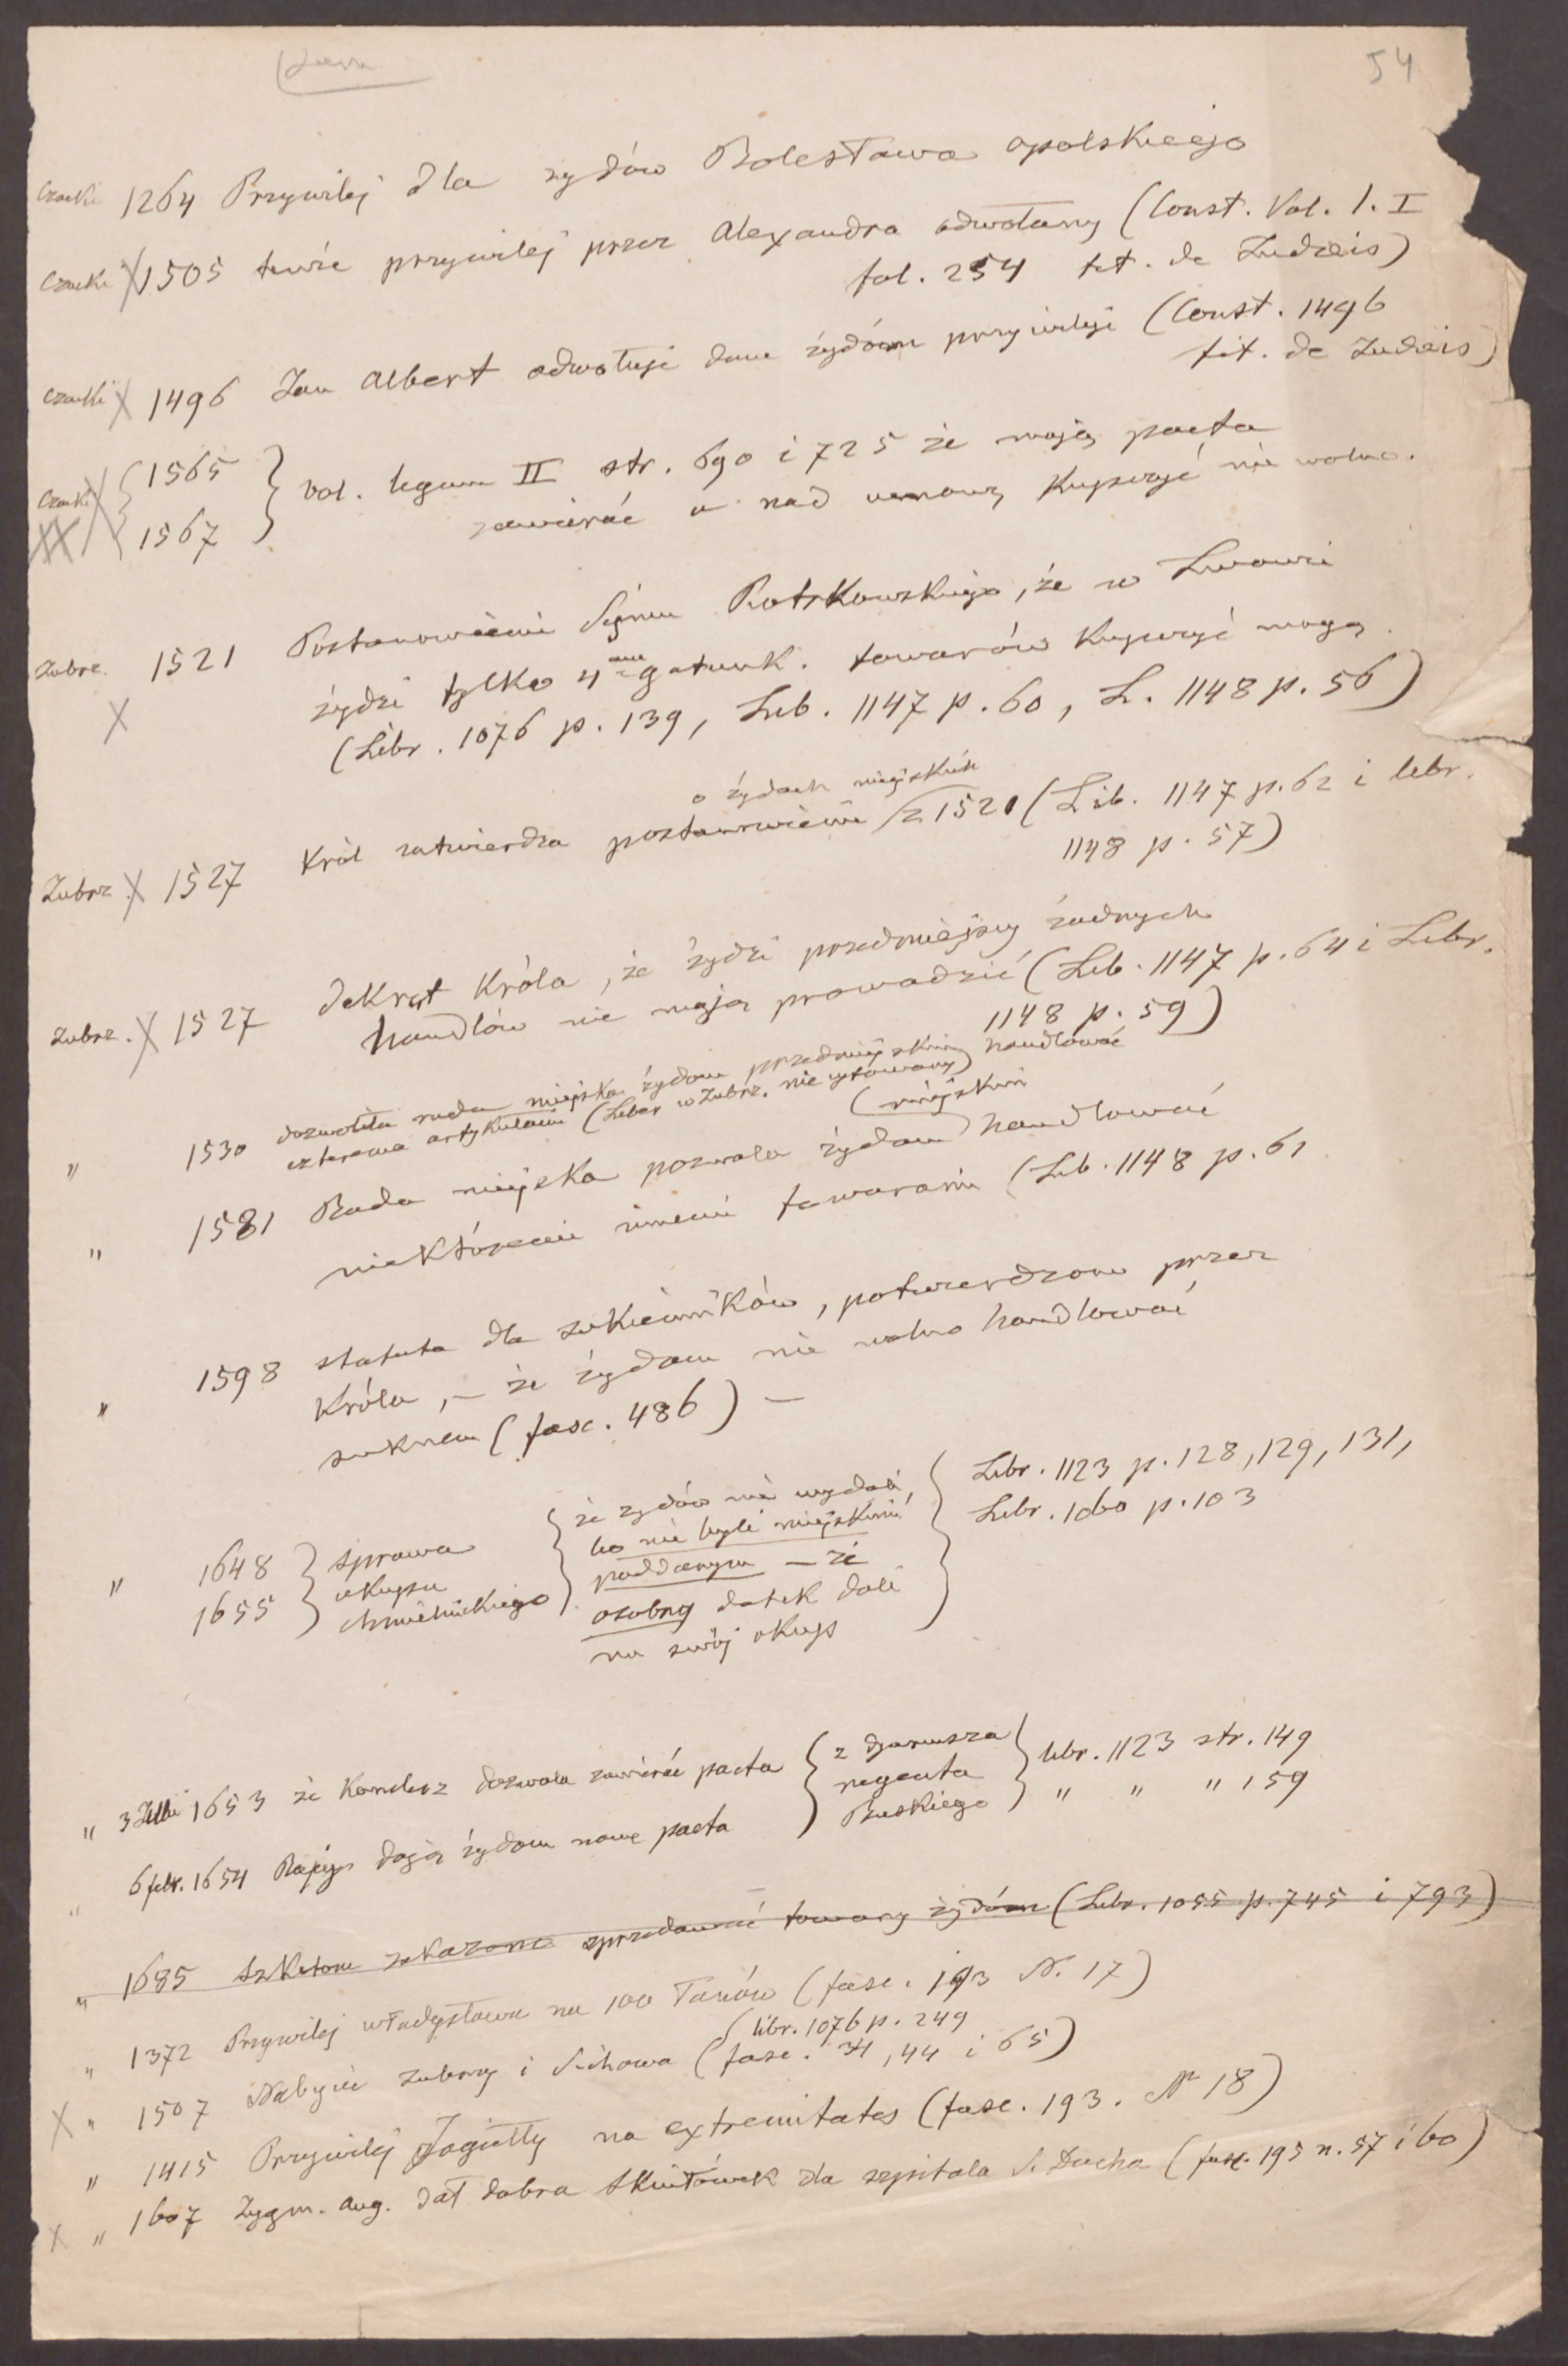 54
Czacki 1264 Przywilej dla żydów Bolesława opolskiego
Czacki X 1505 tenże przywilej przez Alexandra odwołany (Const. Vol. 1. I
fol. 254 tit. de Judaeis)
Czacki X 1496 Jan Albert odwołuje dane żydóm przywileje (Const. 1496
tit. de Judaeis)
Czacki X { 1565 } vol. legum II str. 690 i 725 że mają pacta
XX { 1567 } zawierać a nad umowę kupczyć nie wolno.
Zubrz. 1521 Postanowienie Sejmu Piotrkowskiego, że w Lwowie
X żydzi tylko 4ma gatunk. towarów kupczyć mogą.
(Libr. 1076 p. 139, Lib. 1147 p. 60, L. 1148 p. 56)
o żydach miejskich
Zubrz. X 1527 Król zatwierdza postanowienie z 1521 (Lib. 1147 p. 62 i libr.
1148 p. 57)
Zubrz. X 1527 Dekret Króla, że żydzi przedmiejscy żadnych
handlów nie mają prowadzić (Lib. 1147 p. 64 i Libr.
1148 p. 59)
" 1530 dozwoliła rada miejska żydom przedmiejskim handlować
czterema artykułami (Liber w Zubrz. nie cytowany)
(miejskim
" 1581 Rada miejska pozwala żydom handlować
niektóremi innemi towarami (Lib. 1148 p. 61
" 1598 statuta dla sukienników, potwierdzone przez
Króla, – że żydom nie wolno handlować
suknem (fasc. 486) –
" 1648 } sprawa { że żydów nie wydali, } Libr. 1123 p. 128, 129, 131,
1655 } okupu { bo nie byli miejskimi } Libr. 1060 p. 103
Chmielnickiego { poddanym – że
osobny datek dali
na swój okup
" 3 1653 że Kanclerz dozwala zawierać pacta { z dyariusza } libr. 1123 str. 149
regenta
" 6 febr. 1654 Rajcy dają żydom nowe pacta { Buskiego } " " " 159
" 1685 Szkotom zakazano sprzedawać towary żydóm (Libr. 1055 p. 745 i 793)
" 1372 Przywilej Władysława na 100 Łanów (fasc. 193 N. 17)
( libr. 1076 p. 249
X " 1507 Nabycie Zubrzy i Sichowa (fasc. 34, 44 i 65)
" 1415 Przywilej Jagiełły na extremitates (fasc. 193. Nr 18)
X " 1607 Zygm. Aug. dał dobra Skniłówek dla szpitala S. Ducha (fasc. 195 n. 57 i 60)